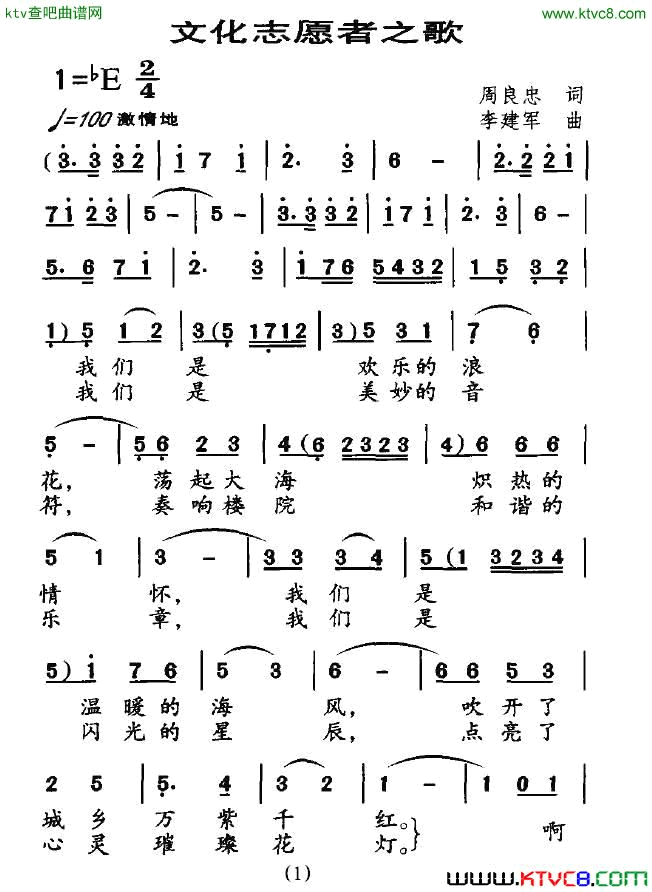 ktv查吧曲谱网
www.ktvc8.com
文化志愿者之歌
1=♭E 2/4
周良忠 词
♩=100 激情地
李建军 曲
(3. 3 3 3 2 | 1 7 1 | 2. 3 | 6 - | 2. 2 2 1 |
7 1 2 3 | 5 - | 5 - | 3. 3 3 2 | 1 7 1 | 2. 3 | 6 - |
5. 6 7 1 | 2. 3 | 1 7 6 5 4 3 2 | 1 5 3 2 |
1) 5 1 2 | 3 (5 1 7 1 2 | 3) 5 3 1 | 7 6 |
我们 是 欢乐的浪
我们 是 美妙的音
5 - | 5 6 2 3 | 4 (6 2 3 2 3 | 4) 6 6 6 |
花, 荡起大海 炽热的
符, 奏响楼院 和谐的
5 1 | 3 - | 3 3 3 4 | 5 (1 3 2 3 4 |
情怀, 我们是
乐章, 我们是
5) 1 7 6 | 5 3 | 6 - | 6 6 5 3 |
温暖的海风, 吹开了
闪光的星辰, 点亮了
2 5 | 5. 4 | 3 2 | 1 - | 1 0 1 |
城乡万紫千红。
心灵璀璨花灯。} 啊
(1)
www.KTVC8.com